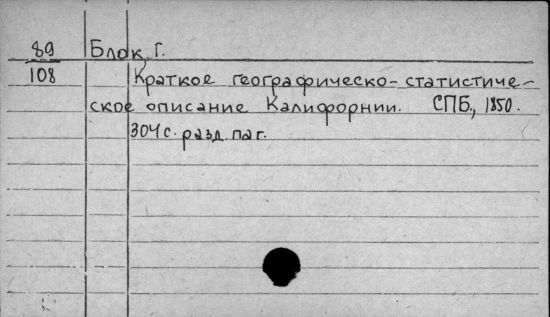 89 Блок, Г.
108 Краткое географическо-статистиче-
ское описание Калифорнии. СПБ., 1850.
304 с. разд. паг.